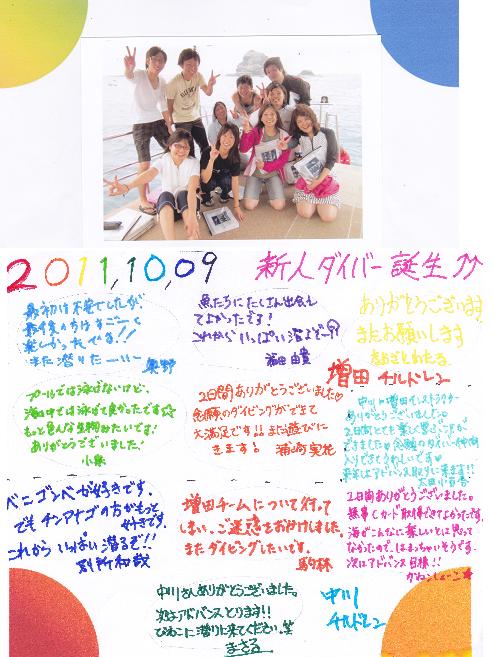 2011,10,09 新人ダイバー誕生
最初は不安でしたが
最後の方はすごーく
楽しかったでする!!
また潜りたーいー
奥野
魚たちにたくさん出会えて
よかったです!
これから いっぱい潜るぞー
福田 由貴
ありがとうございます
またお願いします
増田 チルドレン
プールでは泳げないけど、
海の中では泳げて良かったです☆
もっと色んな生物みたいです!
ありがとうございました!
小泉
2日間ありがとうございました♡
念願のダイビングができて
大満足です!!また遊びに
きます!
浦崎 実花
中川・増田インストラクター
ありがとうございました♡
2日間とても楽しく学ぶことが
できました♡念願のダイバー仲間
入りできてうれしいです♡
来年はアドバンス取りに来ます!!
太田小百合
ベニゴンベが好きです。
でもチンアナゴの方がもって
好きです。
これから いっぱい潜るぞ!!
別所和哉
増田チームについて行って
しまい、ご迷惑をおかけしました。
またダイビングしたいです。
駒林
2日間ありがとうございました。
無事にカード取得できてよかったです。
海がこんなに楽しいとは思って
なかったので、はまっちゃいそうです。
次はアドバンス目標!!
かねこしょーこ★
中川さんありがとうございました。
次はアドバンスとります!!
びわこに潜りに来てください。笑
まさる
中川
チルドレン